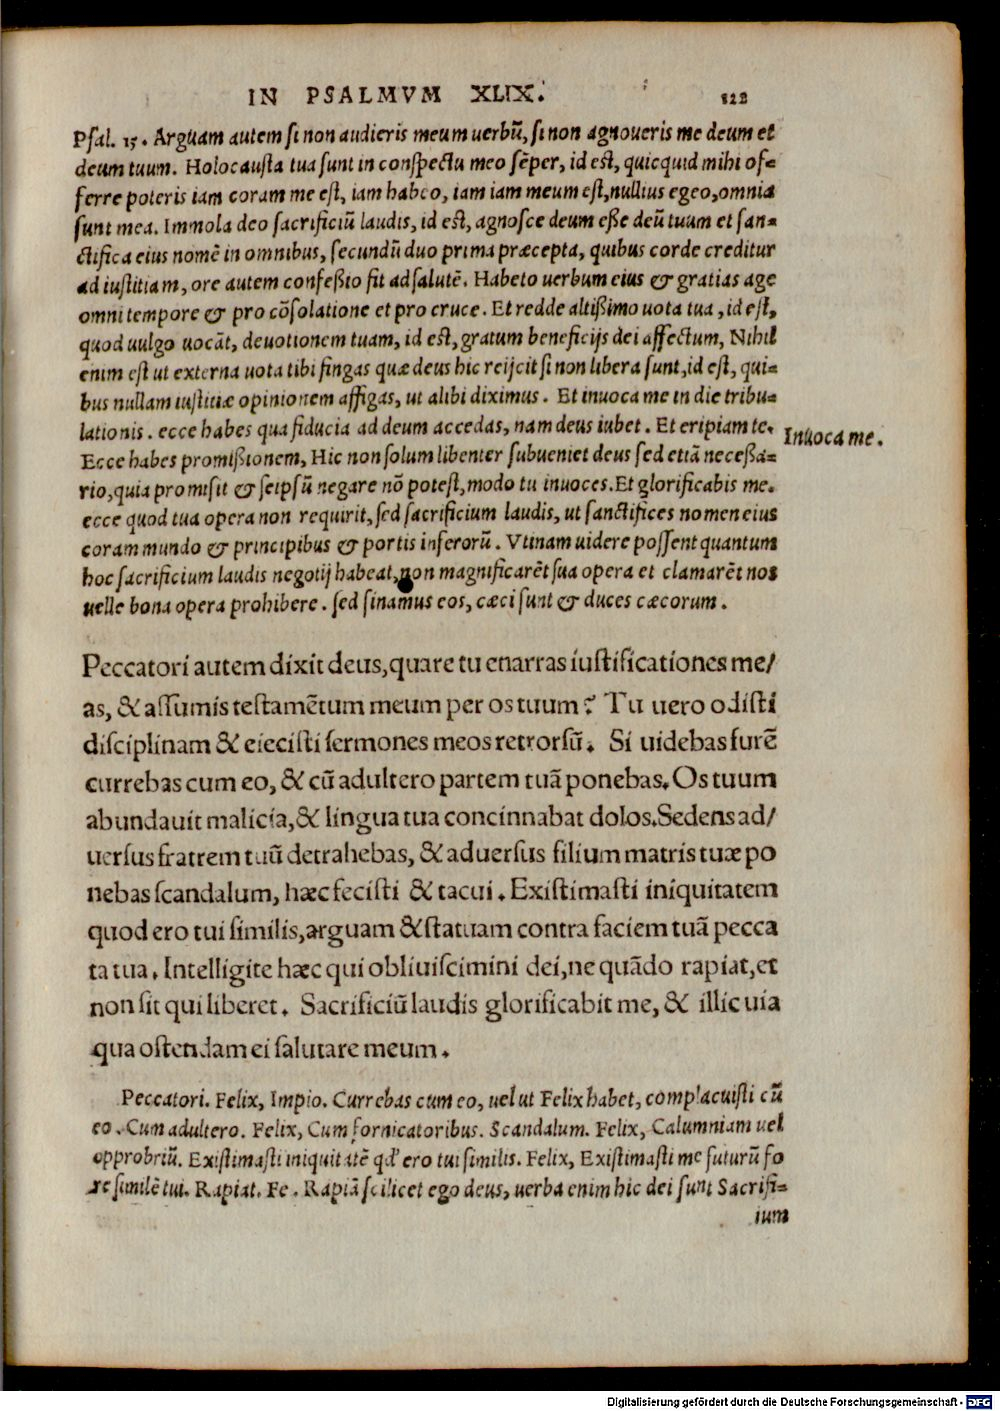 IN PSALMVM XLIX. 122
Psal. 15. Arguam autem si non audieris meum uerbũ, si non agnoueris me deum et
deum tuum. Holocausta tua sunt in conspectu meo sẽper, id est, quicquid mihi of-
ferre poteris iam coram me est, iam habeo, iam iam meum est, nullius egeo, omnia
sunt mea. Immola deo sacrificiũ laudis, id est, agnosce deum eße deũ tuum et san-
ctifica eius nomẽ in omnibus, secundũ duo prima præcepta, quibus corde creditur
ad iustitiam, ore autem confeßio fit ad salutẽ. Habeto uerbum eius & gratias age
omni tempore & pro cõsolatione et pro cruce. Et redde altißimo uota tua, id est,
quod uulgo uocãt, deuotionem tuam, id est, gratum beneficijs dei affectum, Nihil
enim est ut externa uota tibi fingas quæ deus hic reijcit si non libera sunt, id est, qui-
bus nullam iustitiæ opinionem affigas, ut alibi diximus. Et inuoca me in die tribu-
lationis. ecce habes qua fiducia ad deum accedas, nam deus iubet. Et eripiam te.
Inuoca me.
Ecce habes promißionem, Hic non solum libenter subueniet deus sed etiã neceßa-
rio, quia promisit & seipsũ negare nõ potest, modo tu inuoces. Et glorificabis me.
ecce quod tua opera non requirit, sed sacrificium laudis, ut sanctifices nomen eius
coram mundo & principibus & portis inferorũ. Vtinam uidere possent quantum
hoc sacrificium laudis negotij habeat, non magnificarẽt sua opera et clamarẽt nos
uelle bona opera prohibere. sed sinamus eos, cæci sunt & duces cæcorum.
Peccatori autem dixit deus, quare tu enarras iustificationes me/
as, & assumis testamẽtum meum per os tuum? Tu uero odisti
disciplinam & eiecisti sermones meos retrorsũ. Si uidebas furẽ
currebas cum eo, & cũ adultero partem tuã ponebas. Os tuum
abundauit malicia, & lingua tua concinnabat dolos. Sedens ad/
uersus fratrem tuũ detrahebas, & aduersus filium matris tuæ po
nebas scandalum, hæc fecisti & tacui. Existimasti iniquitatem
quod ero tui similis, arguam & statuam contra faciem tuã pecca
ta tua. Intelligite hæc qui obliuiscimini dei, ne quãdo rapiat, et
non sit qui liberet. Sacrificiũ laudis glorificabit me, & illic uia
qua ostendam ei salutare meum.
Peccatori. Felix, Impio. Currebas cum eo, uel ut Felix habet, complacuisti cũ
eo. Cum adultero. Felix, Cum fornicatoribus. Scandalum. Felix, Calumniam uel
opprobriũ. Existimasti iniquitatẽ qd' ero tui similis. Felix, Existimasti me futurũ fo
re similẽ tui. Rapiat. Fe. Rapiã scilicet ego deus, uerba enim hic dei sunt Sacrifi-
ium
Digitalisierung gefördert durch die Deutsche Forschungsgemeinschaft - DFG